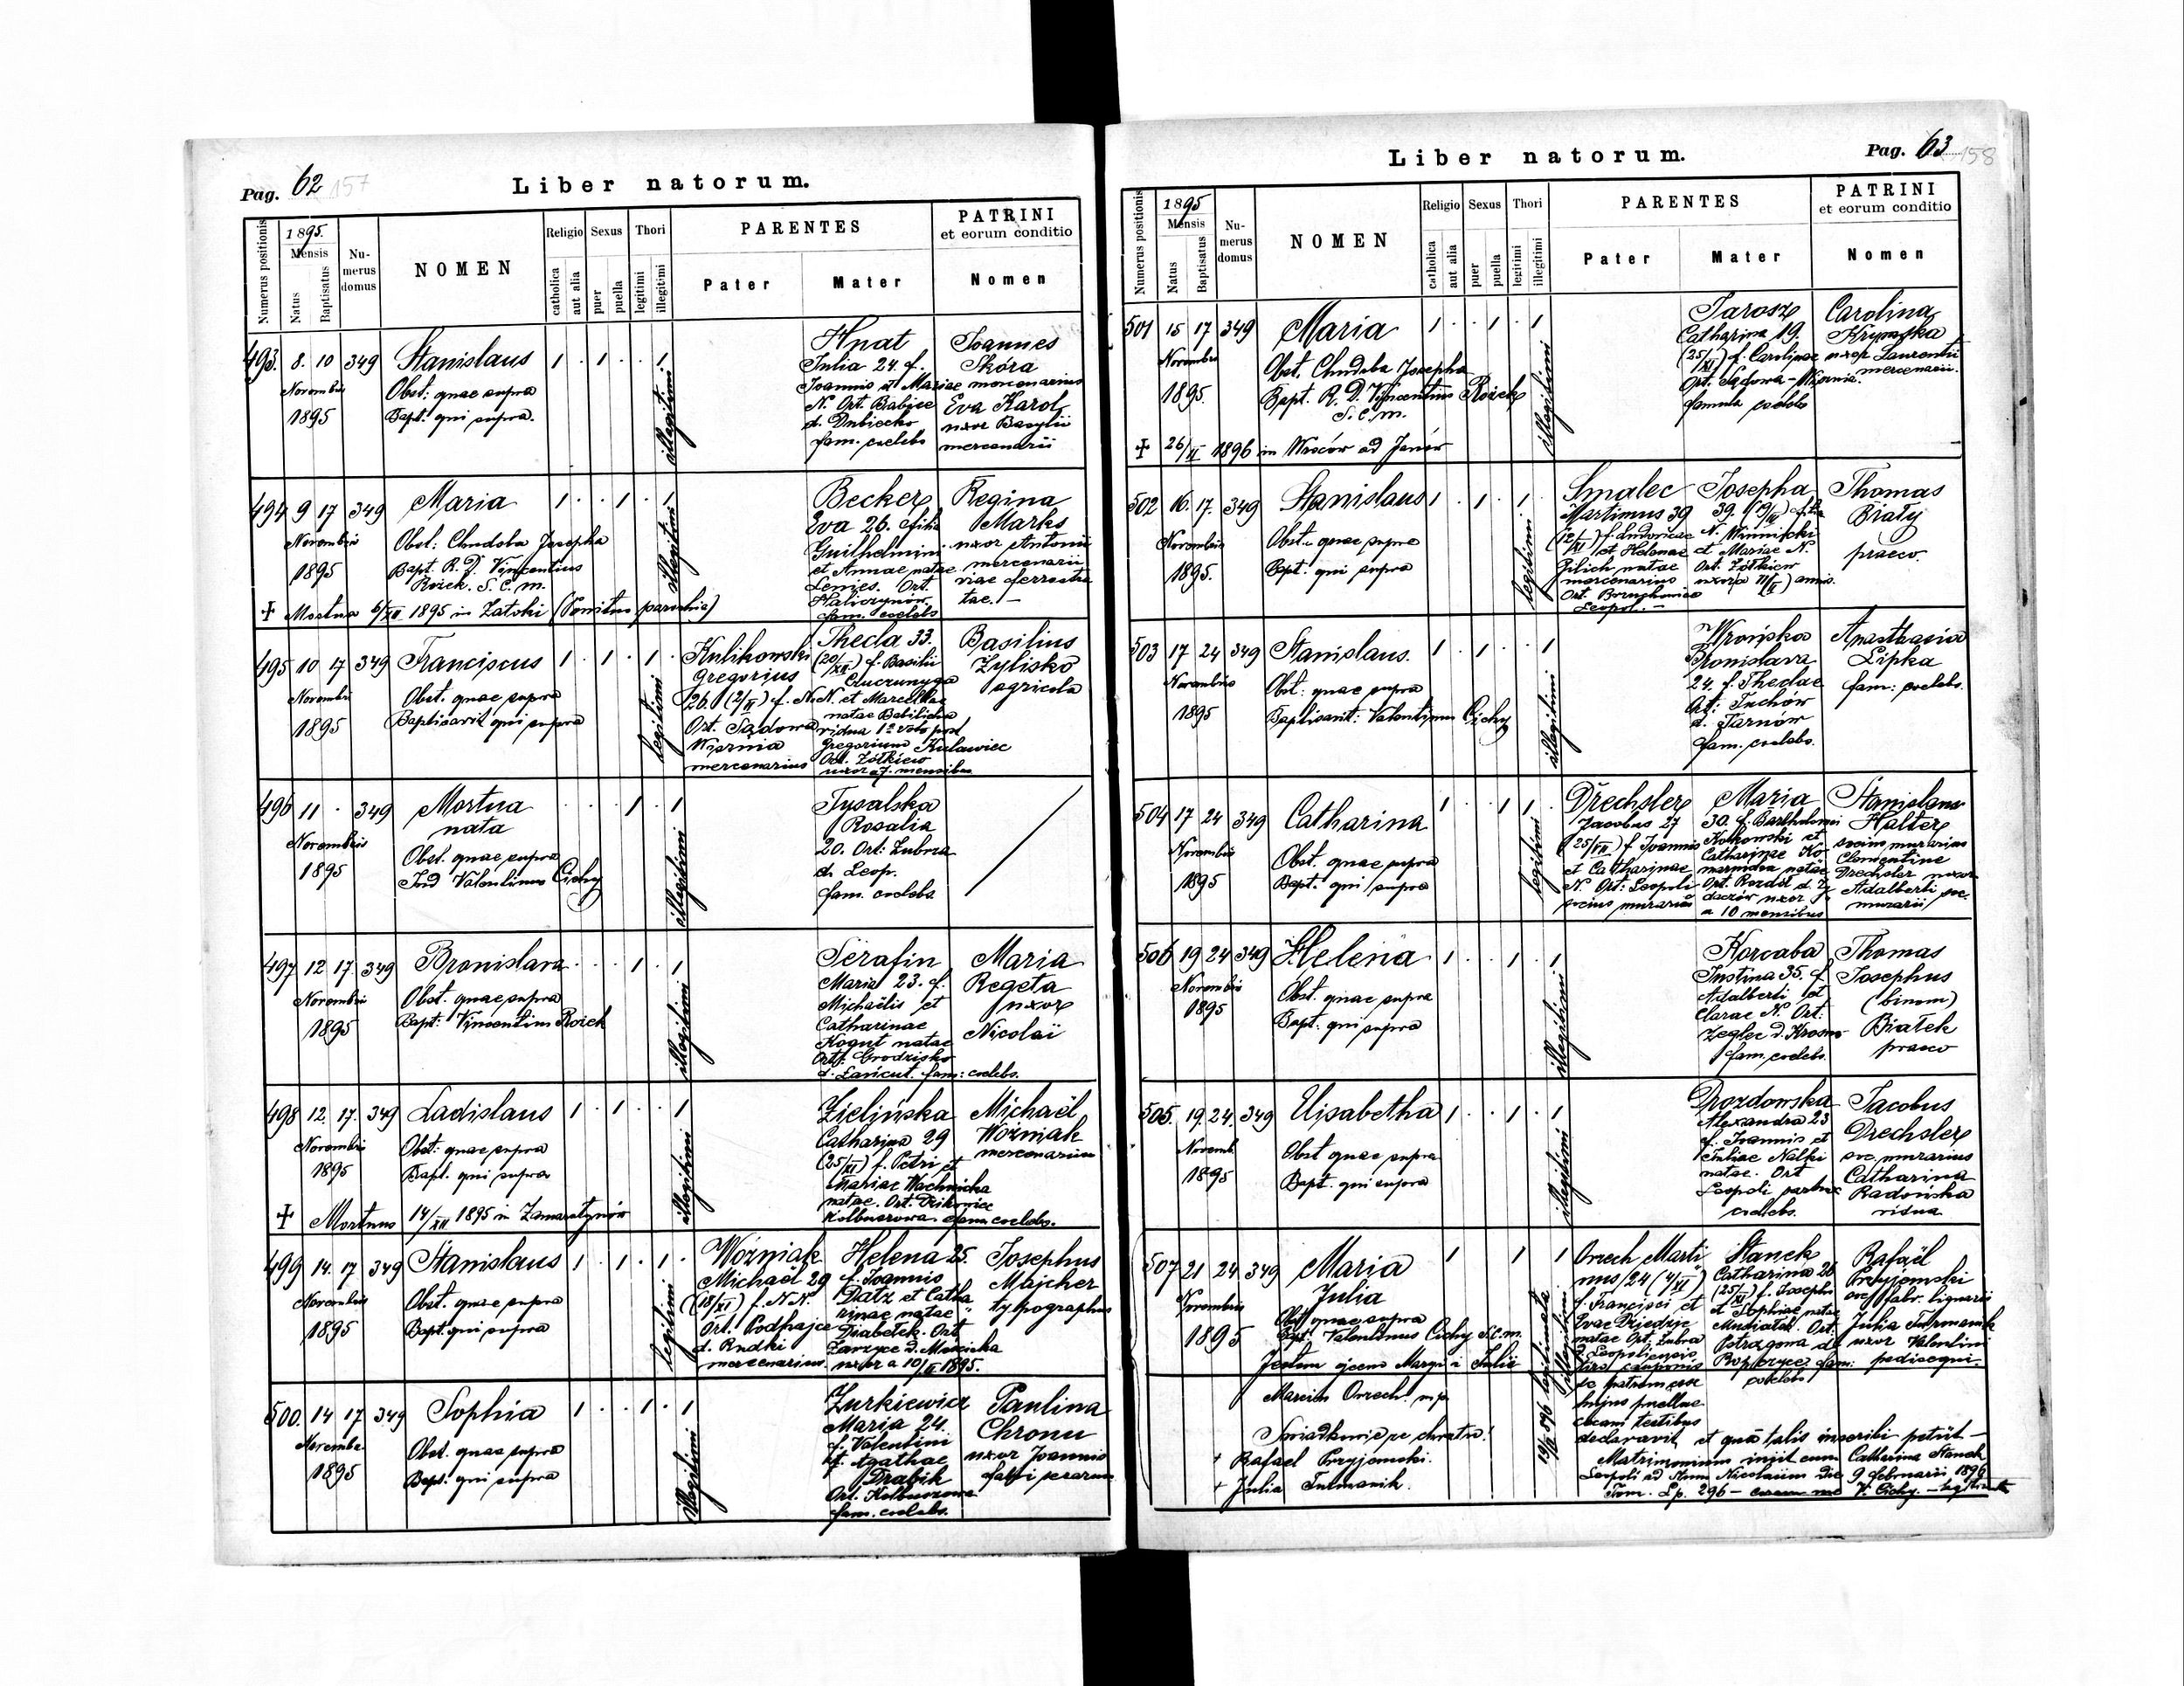 Pag. 62 157
Liber natorum.
Numerus positionis
1895.
Mensis
Natus
Baptisatus
Nu-
merus
domus
NOMEN
Religio
catholica
aut alia
Sexus
puer
puella
Thori
legitimi
illegitimi
PARENTES
Pater
Mater
PATRINI
et eorum conditio
Nomen
493. 8. 10 349 Stanislaus 1 . 1 . . 1
Novembris
1895
Obst: quae supra
Bapt: qui supra.
illegitimi
Hnat
Julia 24. f.
Joannis et Mariae
N. Ort. Babice
d. Dubiecko
fam. coelebs
Joannes
Skóra
mercenarius
Eva Karol
uxor Basylii
mercenarii
494 9 17 349 Maria 1 . . 1 . 1
Novembris
1895
Obst: Chudoba Josepha
Bapt. R. D. Vincentius
Rożek. S. C. m.
✝ Mortua 6/XII 1895 in Zatoki
illegitimi
Becker
Eva 26. filia
Guilhelmini
et Annae natae
Ort.
fam. coelebs
Regina
Marks
uxor Antonii
mercenarii
viae ferrestra
tae. —
495 10 17 349 Franciscus 1 . 1 . 1 .
Novembri
1895
Obst. quae supra
Baptisavit qui supra
legitimi
Kulikowski
Gregorius
26. (2/II) f. N.
Ort. Sądowa
Wisznia
mercenarius
Thecla 33.
(20/XII) f. Basilii
N. et Marcellae
natae
vidua 1º voto post
Gregorium Kulawiec
Ort. Żółkiew
uxor a 7. mensibus
Basilius
Żylisko
agricola
496 11 . 349 Mortua . . . 1 . 1
nata
Novembris
1895
Obst. quae supra
Ind Valentinus Cichy
illegitimi
Tysalska
Rosalia
20. Ort: Zubrza
d. Leop.
fam. coelebs.
497 12 17. 349 Bronislava . . . 1 . 1
Novembris
1895
Obst. quae supra
Bapt: Vincentius Rożek
illegitimi
Serafin
Maria 23. f.
Michaëlis et
Catharinae
Kogut natae
Ort: Grodzisko
d. Łańcut. fam: coelebs.
Maria
Regeta
uxor
Nicolaï
498 12. 17. 349 Ladislaus 1 . 1 . . 1
Novembri
1895
Obst: quae supra
Bapt. qui supra
✝ Mortuus 14/XII 1895 in Zamarstynów
illegitimi
Zielińska
Catharina 29
(25/XI) f. Petri et
Mariae Wachnicka
natae. Ort. Dzikowiec
Kolbuszowa fam. coelebs.
Michaël
Woźniak
mercenarius
499 14. 17 349 Stanislaus 1 . 1 . 1 .
Novembris
1895
Obst. quae supra
Bapt. qui supra
legitimi
Woźniak
Michaël 29
(18/XI) f. N. N.
Ort. Podhajce
d. Rudki
mercenarius
Helena 25.
f. Joannis
Datz et Catha
rinae natae
Diabełek. Ort
Zarzyce d. Mościska
uxor a 10/II 1895.
Josephus
Majcher
typographus
500. 14 17 349 Sophia 1 . . 1 . 1
Novemb.
1895
Obst. quae supra
Bapt. qui supra
illegitimi
Żurkiewicz
Maria 24.
f. Valentini
et Agathae
Drabik
Ort. Kolbuszowa
fam. coelebs.
Paulina
Chronu
uxor Joannis
fabri
Liber natorum.
Pag. 63 158
Numerus positionis
1895
Mensis
Natus
Baptisatus
Nu-
merus
domus
NOMEN
Religio
catholica
aut alia
Sexus
puer
puella
Thori
legitimi
illegitimi
PARENTES
Pater
Mater
PATRINI
et eorum conditio
Nomen
501 15 17 349 Maria 1 . . 1 . 1
Novembri
1895.
Obst. Chudoba Josepha
Bapt. R. D. Vincentius Rożek
S. C. m.
✝ 26/II 1896 in Wroców ad Janów
illegitimi
Jarosz
Catharina 19.
(25/XI) f. Carolinae
Ort. Sądowa-Wisznia.
famula coelebs
Carolina
uxor Laurentii
mercenarii.
502 16. 17. 349 Stanislaus 1 . 1 . 1 .
Novembris
1895.
Obst. quae supra
Bpt. qui supra
legitimi
Smalec
Martinus 39
(12/XI) f. Ludovicae
et Helenae
Pilich natae
mercenarius
Ort. Brzuchowice
Leopol. —
Josepha
39. (9/III) filia
N. Winnicki
et Mariae N.
Ort. Żółkiew
uxor a 11/II) annis.
Thomas
Biały
praeco.
503 17 24 349 Stanislaus. 1 . 1 . . 1
Novembris
1895
Obst: quae supra
Baptisavit: Valentinus Cichy
illegitimi
Wrońska
Bronislava
24. f. Theclae
Ort: Tuchów
d. Tarnów
fam. coelebs.
Anasthasia
Lipka
fam: coelebs.
504 17 24 349 Catharina 1 . . 1 1 .
Novembris
1895
Obst. quae supra
Bapt. qui supra
legitimi
Drechsler
Jacobus 27
(25/VII) f Joannis
et Catharinae
N. Ort: Leopoli
socius murarius
Maria
30. f. Bartholomei
Kotkowski et
Catharinae
natae
Ort. Rozdół d. Ży
daczów uxor
a 10 mensibus
Stanislaus
Halter
socius murarius
Clementine
Drechsler uxor
Adalberti soc.
murarii
506 19 24 349 Helena 1 . . 1 . 1
Novembris
1895
Obst. quae supra
Bapt: qui supra
illegitimi
Korcaba
Justina 35. f.
Adalberti et
Clarae N. Ort:
Żeglec d. Krosno
fam. coelebs.
Thomas
Josephus
(binom)
Białek
praeco
505. 19. 24. 349 Elisabetha 1 . . 1 . 1
Novemb.
1895
Obst quae supra
Bapt. qui supra
illegitimi
Drozdowska
Alexandra 23
f. Joannis et
Juliae Nalki
natae. Ort
Leopoli
coelebs.
Jacobus
Drechsler
soc. murarius
Catharina
Radońska
vidua
507 21 24 349 Maria 1 1 1
Julia
Novembris
1895
Obst quae supra
Bpt. Valentinus Cichy S.C.m.
Jestem ojcem Maryi i Julii
Marcin Orzech mp.
Świadkowie ze chrztu:
+ Rafael Przyjemski.
+ Julia Tulmanik.
illegitimi
legitimata
Orzech Marti
nus 24 (4/XII)
f. Francisci et
Evae Dziedzic
natae Ort. Zubra
d. Leopoliensis
se patrem esse
hujus puellae
coram testibus
declaravit et quâ talis inscribi petiit —
Matrimonium iniit cum Catharina Stanek
Leopoli ad Stum Nicolaum die 9 februarii 1896
Tom. L p. 296 — coram me V. Cichy. —
Stanek
Catharina 26
(25/XI) f. Josephi
et Sophiae natae
Ort.
Ropczyce fam:
coelebs
Rafaël
Przyjemski
soc. fabr. lignarii
Julia
uxor Valentini
pedisequi